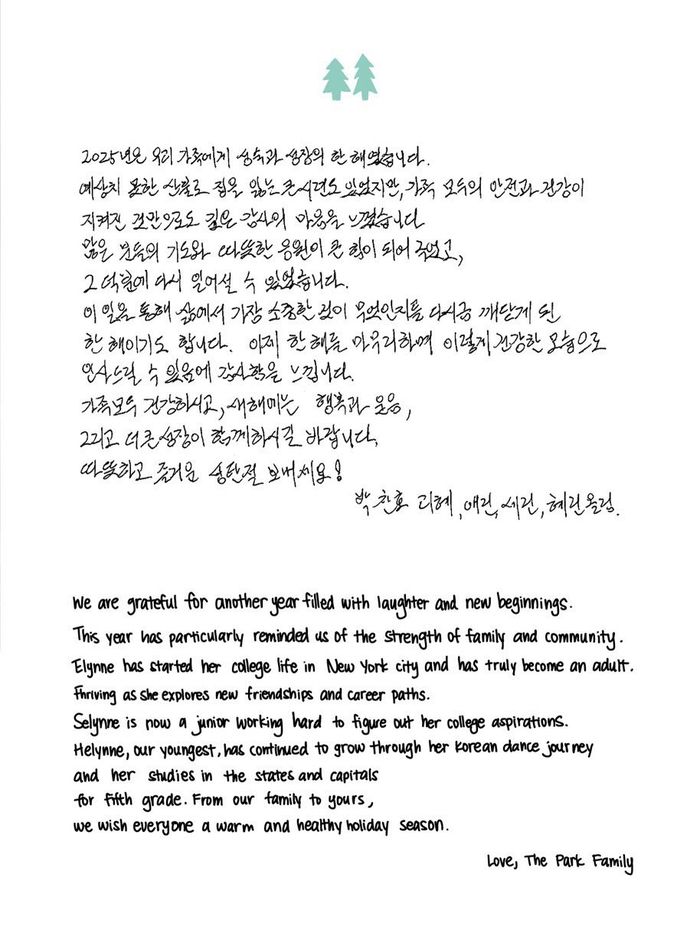 2025년은 우리 가족에게 성숙과 성장의 한 해였습니다.
예상치 못한 산불로 집을 잃는 큰 시련도 있었지만, 가족 모두의 안전과 건강이
지켜진 것만으로도 깊은 감사의 마음을 느꼈습니다
많은 분들의 기도와 따뜻한 응원이 큰 힘이 되어 주었고,
그 덕분에 다시 일어설 수 있었습니다.
이 일을 통해 삶에서 가장 소중한 것이 무엇인지를 다시금 깨닫게 된
한 해이기도 합니다. 이제 한 해를 마무리하며 이렇게 건강한 모습으로
인사드릴 수 있음에 감사함을 느낍니다.
가족모두 건강하시고, 새해에는 행복과 웃음,
그리고 더 큰 성장이 함께하시길 바랍니다.
따뜻하고 즐거운 성탄절 보내세요!
박찬호 리혜, 애린, 세린, 혜린올림.
We are grateful for another year filled with laughter and new beginnings.
This year has particularly reminded us of the strength of family and community.
Elynne has started her college life in New York city and has truly become an adult.
Thriving as she explores new friendships and career paths.
Selynne is now a junior working hard to figure out her college aspirations.
Helynne, our youngest, has continued to grow through her Korean dance journey
and her studies in the states and capitals
for fifth grade. From our family to yours,
we wish everyone a warm and healthy holiday season.
Love, The Park Family